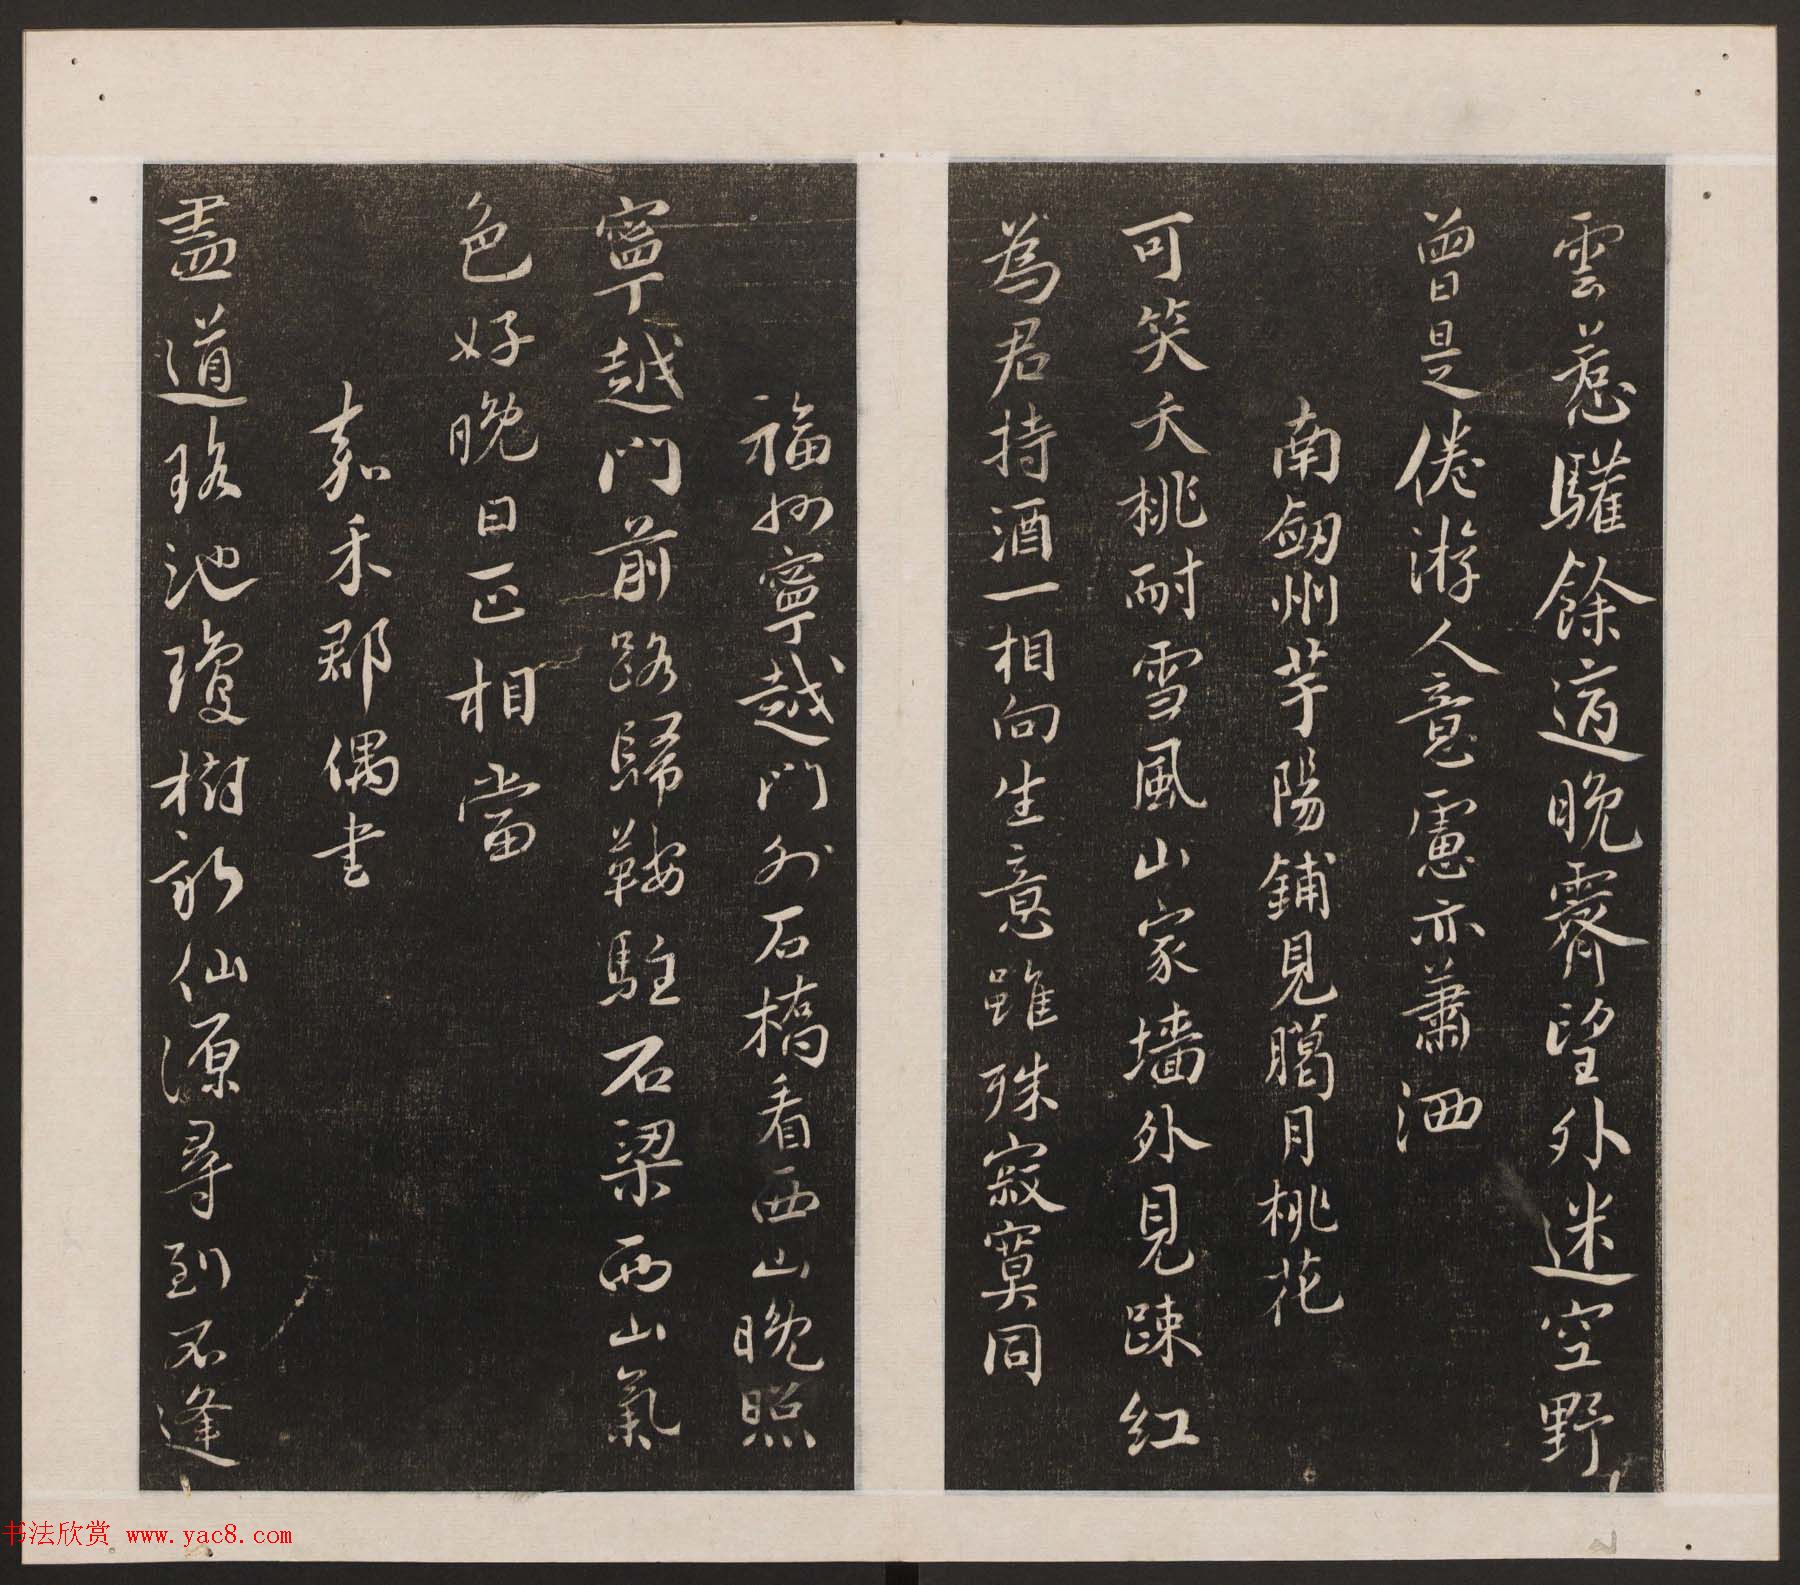 雲惹驩餘適晚霽望外迷空野
曾是倦游人意慮亦蕭洒
南劔州芋陽鋪見臈月桃花
可笑夭桃耐雪風山家墻外見踈红
為君持酒一相向生意雖殊寂寞同
福州寧越門外石橋看西山晚照
寧越門前路歸鞍駐石梁西山氣
色好晚日正相當
嘉禾郡偶書
盡道瑤池瓊樹新仙源尋到不逢
书法欣赏 www.yac8.com